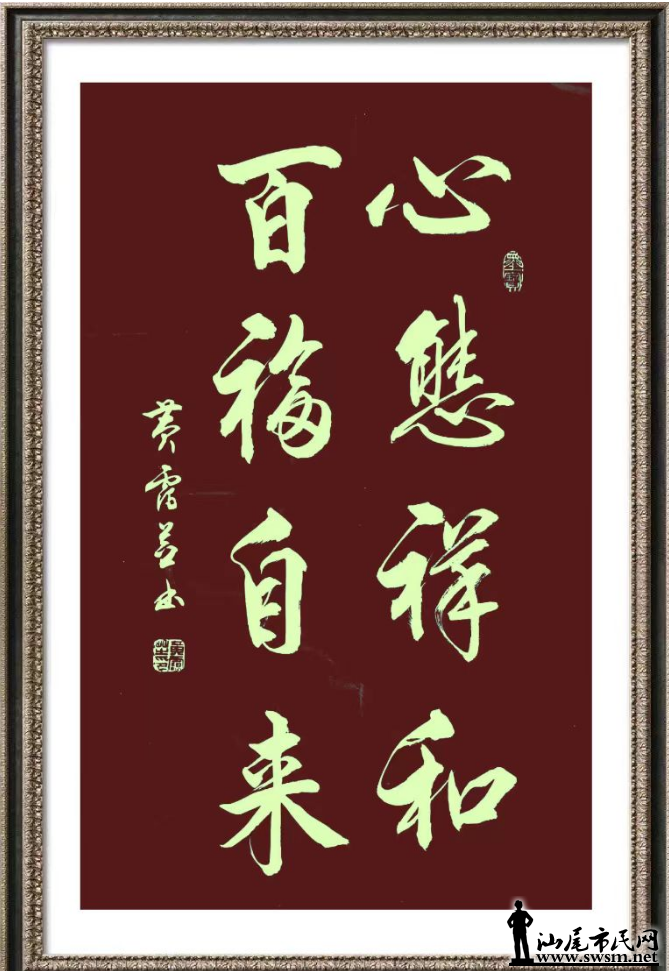 心態祥和
百福自来
黄霞書
汕尾市民网
www.swsm.net